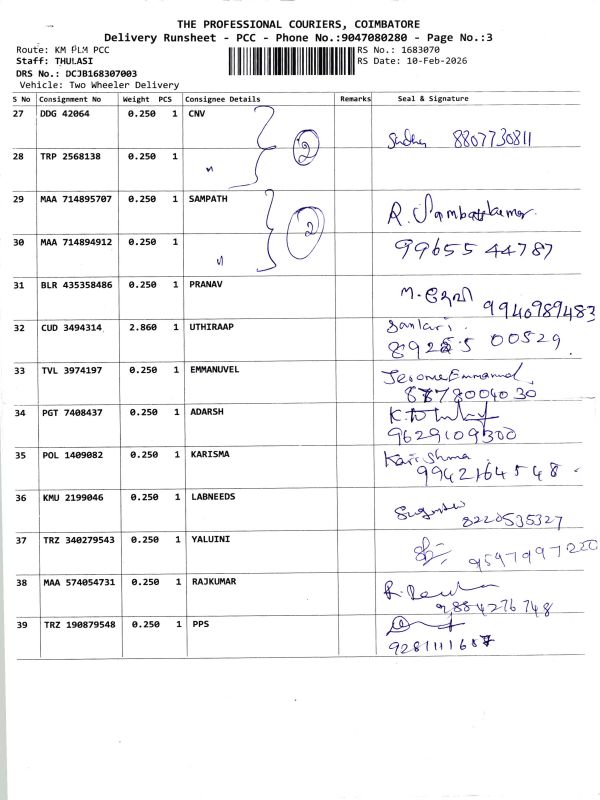 THE PROFESSIONAL COURIERS, COIMBATORE
Delivery Runsheet - PCC - Phone No.:9047080280 - Page No.:3
Route: KM PLM PCC
RS No.: 1683070
Staff: THULASI
RS Date: 10-Feb-2026
DRS No.: DCJB168307003
Vehicle: Two Wheeler Delivery
S No Consignment No Weight PCS Consignee Details Remarks Seal & Signature
27 DDG 42064 0.250 1 CNV
2 8807730811
28 TRP 2568138 0.250 1 "
29 MAA 714895707 0.250 1 SAMPATH
2 R. Sambathkumar.
30 MAA 714894912 0.250 1 " 99655 44787
31 BLR 435358486 0.250 1 PRANAV M. தேவி 9940989483
32 CUD 3494314 2.860 1 UTHIRAAP 00529
33 TVL 3974197 0.250 1 EMMANUVEL Jerome Emmanuel
8778004030
34 PGT 7408437 0.250 1 ADARSH
9629109300
35 POL 1409082 0.250 1 KARISMA Karishma
9942164548
36 KMU 2199046 0.250 1 LABNEEDS
8220535327
37 TRZ 340279543 0.250 1 YALUINI 9597997220
38 MAA 574054731 0.250 1 RAJKUMAR
9884276748
39 TRZ 190879548 0.250 1 PPS
9281111687